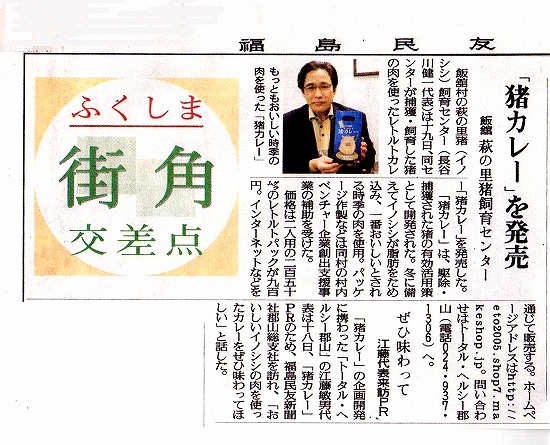 福島民友
「猪カレー」を発売
飯舘 萩の里猪飼育センター
飯舘村の萩の里猪（イノ
シシ）飼育センター（長谷
川健一代表）は十九日、同セ
ンターが捕獲・飼育した猪
の肉を使ったレトルトカレ
ー「猪カレー」を発売した。
「猪カレー」は、駆除・
捕獲された猪の有効活用策
として開発された。冬に備
えてイノシシが脂肪をため
込み、一番おいしいとされ
る時季の肉を使用。パッケ
ージ作製などは同村の村内
ベンチャー企業創出支援事
業の補助を受けた。
価格は二人用の二百五十
㌘のレトルトパックが九百
円。インターネットなどを
通じて販売する。ホームペ
ージアドレスはhttp://
eto2005.shop7.ma
keshop.jp/ 問い合わ
せはトータル・ヘルシー郡
山（電話024・937・
1306）へ。
ぜひ味わって
江藤代表来訪PR
「猪カレー」の企画開発
に携わった「トータル・ヘ
ルシー郡山」の江藤敏男代
表は十八日、「猪カレー」
PRのため、福島民友新聞
社郡山総支社を訪れ、「お
いしいイノシシの肉を使っ
たカレーをぜひ味わってほ
しい」と話した。
もっともおいしい時季の
肉を使った「猪カレー」
猪カレー
ふくしま
街角
交差点